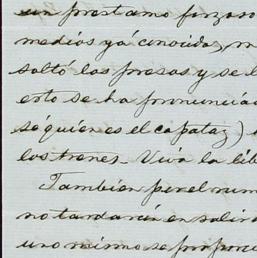 un prestamo forzoso
medios yá conocidos, m
soltó los presos y se l
esto se ha pronunciad
sé quien es el capataz)
los trenes. Viva la lib
Tambien por el rum
no tardarán en salir
uno mismo se propon